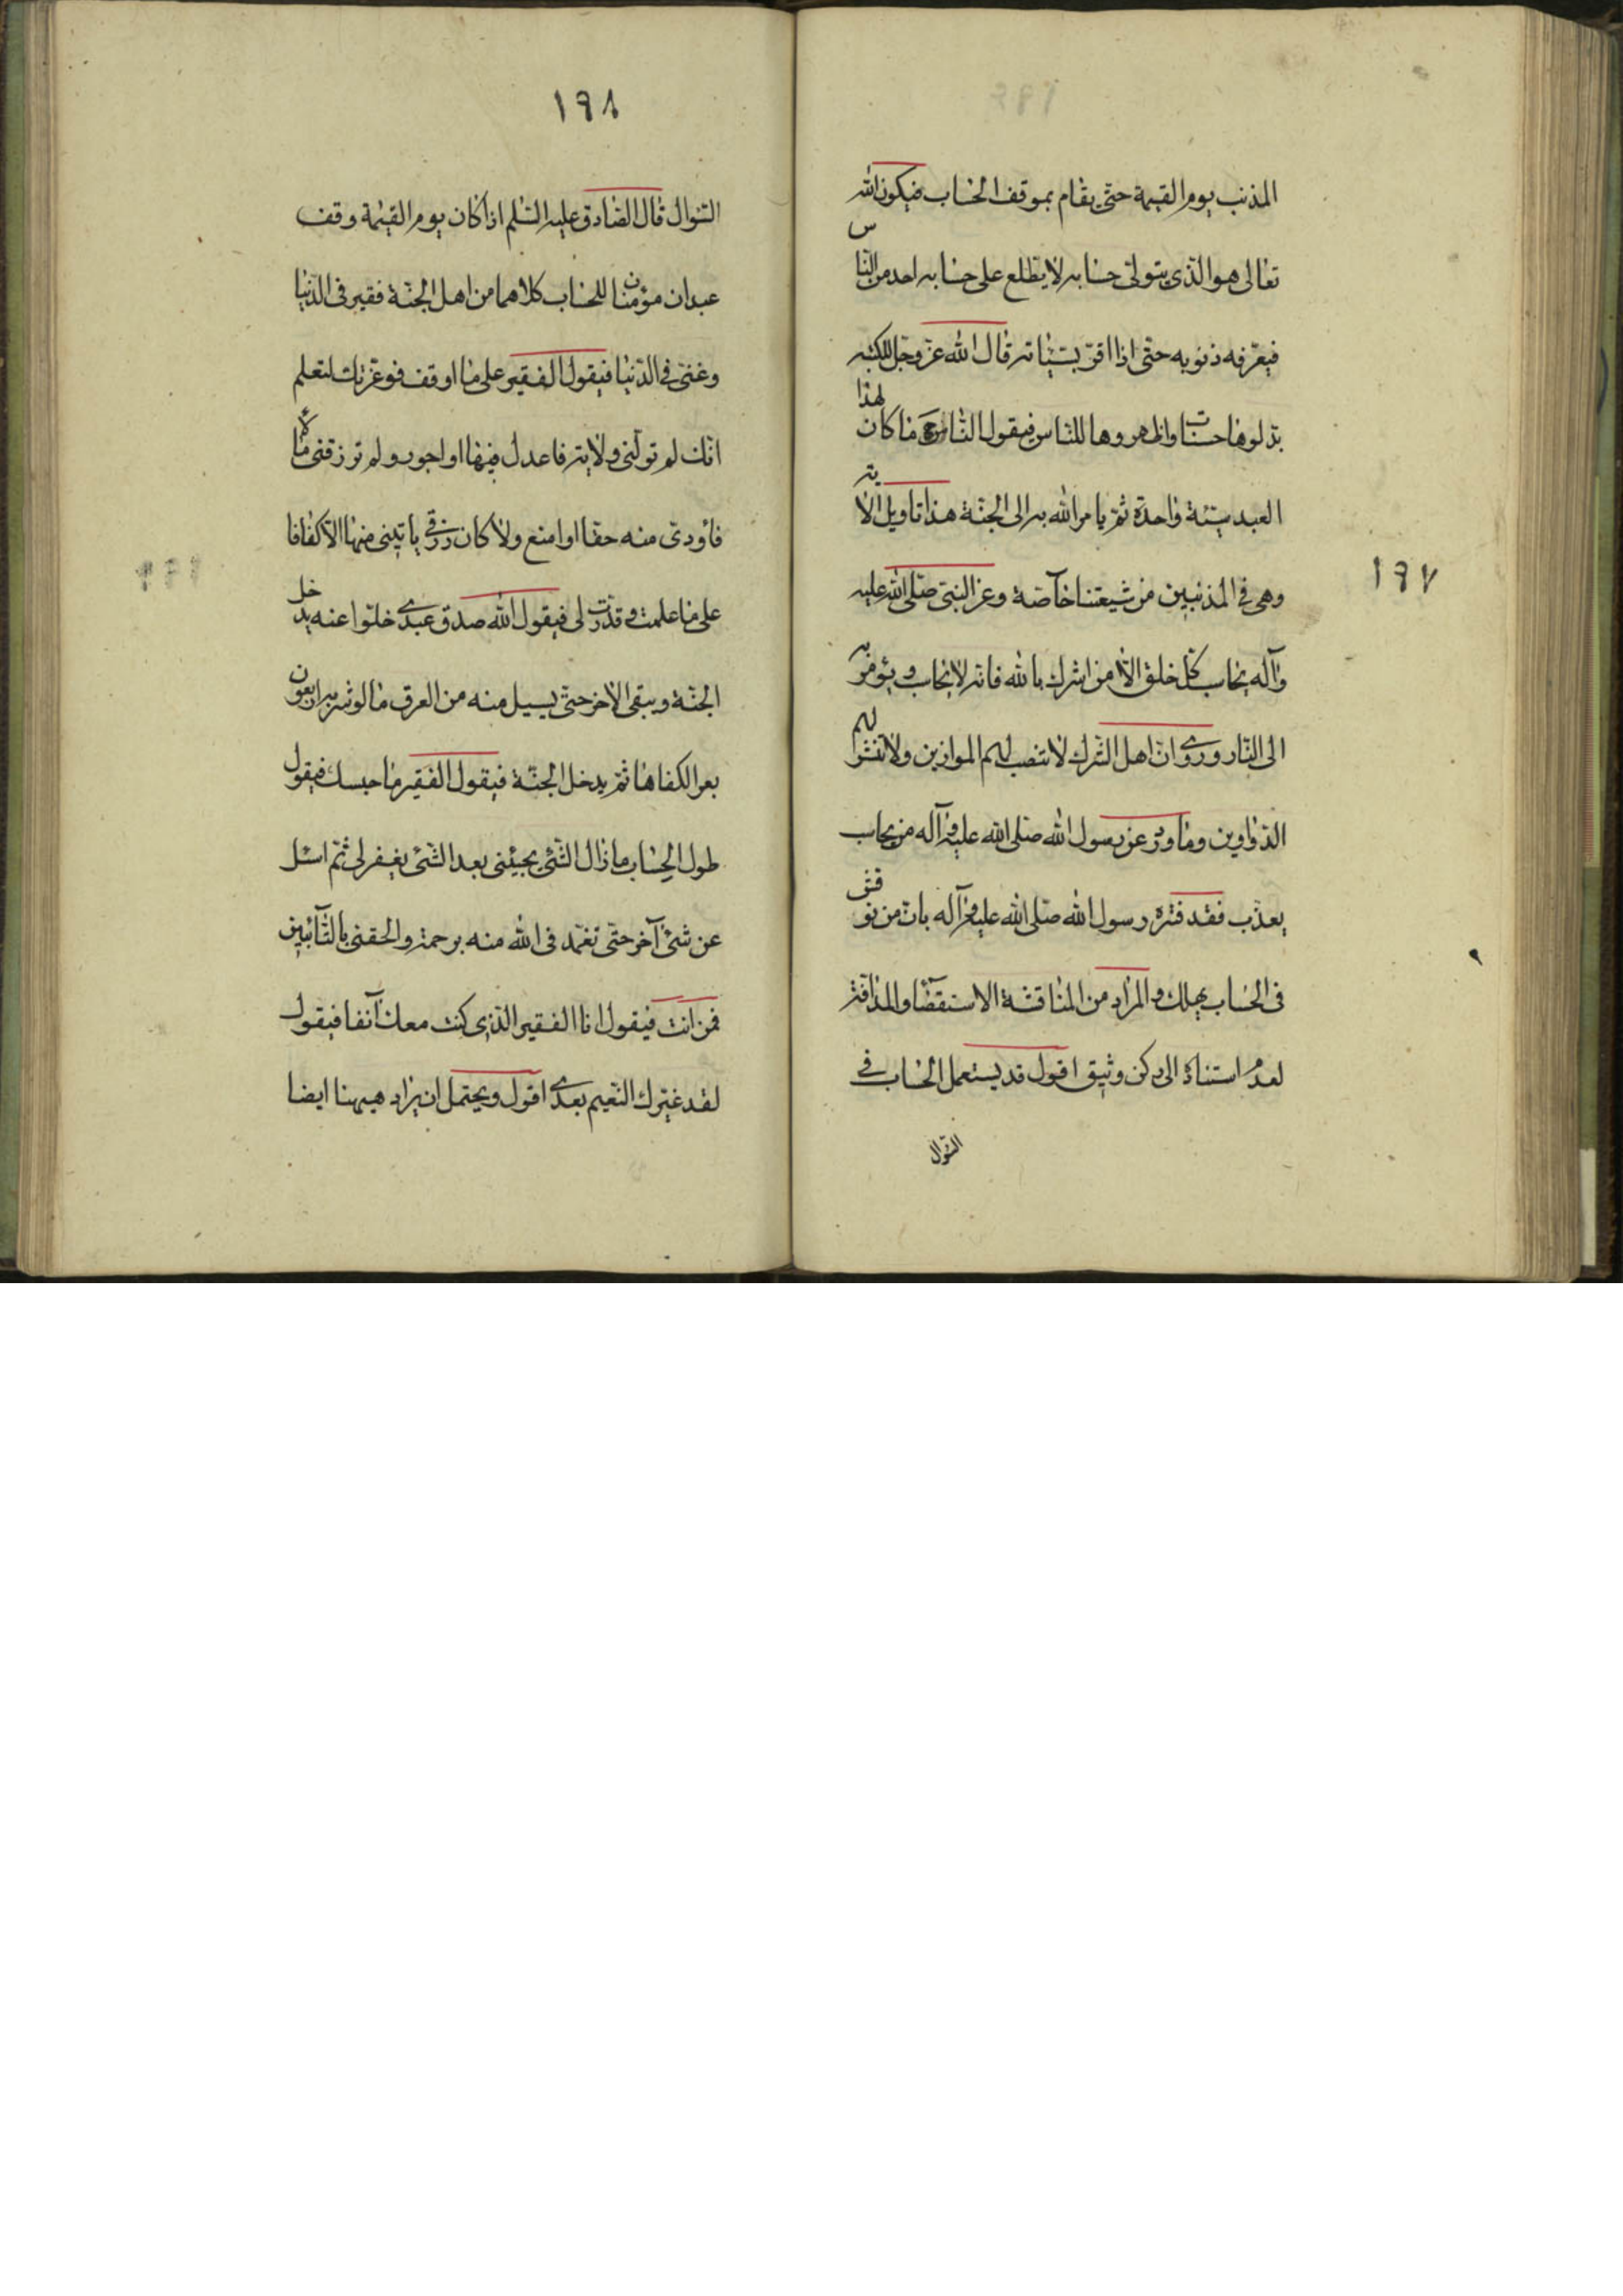 ١٩٧
المذنب يوم القيمة حتى يقام بموقف الحساب فيكون الله
تعالى هو الذي يتولى حسابه لا يطلع على حسابه احد من الناس
فيعرفه ذنوبه حتى اذا اقر بسيئاته قال الله عز وجل للكتبة
بدلوها حسنات واظهروها للناس فيقول الناس ح ما كان لهذا
العبد سيئة واحدة ثم يامر الله به الى الجنة هذا تاويل الاية
وهى في المذنبين من شيعتنا خآصة وعن النبي صلى الله عليه
وآله يحاسب كل خلق الا من اشرك بالله فانه لا يحاسب ويؤمر به
الى النار وروى ان اهل الشرك لا تنصب لهم الموازين ولا تنشر لهم
الدواوين وما ورد عن رسول الله صلى الله عليه وآله من يحاسب
يعذب فقد فسره رسول الله صلى الله عليه وآله بان من نوقش
في الحساب يهلك والمراد من المناقشة الاستقصآء والمداقة
لعدم استناده الى ركن وثيق اقول قد يستعمل الحساب في
السؤال
١٩٨
السؤال قال الصادق عليه السلم اذا كان يوم القيمة وقف
عبدان مؤمنان للحساب كلاهما من اهل الجنة فقير في الدنيا
وغنى في الدنيا فيقول الفقير على ما اوقف فوعزتك لتعلم
انك لم تولنى ولاية فاعدل فيها او اجور ولم ترزقنى مالا
فاؤدى منه حقا او امنع ولا كان رزقي ياتينى منها الا كفافا
على ما علمت وقدرت لى فيقول الله صدق عبدى خلوا عنه يدخل
الجنة ويبقى الاخر حتى يسيل منه من العرق ما لو شربه اربعون
بعيرا لكفاها ثم يدخل الجنة فيقول الفقير ما حبسك فيقول
طول الحساب ما زال الشئ يجيئنى بعد الشئ يغفر لى ثم اسئل
عن شئ آخر حتى تغمدنى الله منه برحمته والحقنى بالتآئبين
فمن انت فيقول انا الفقير الذي كنت معك آنفا فيقول
لقد غيرك النعيم بعدى اقول ويحتمل ان يراد هيهنا ايضا